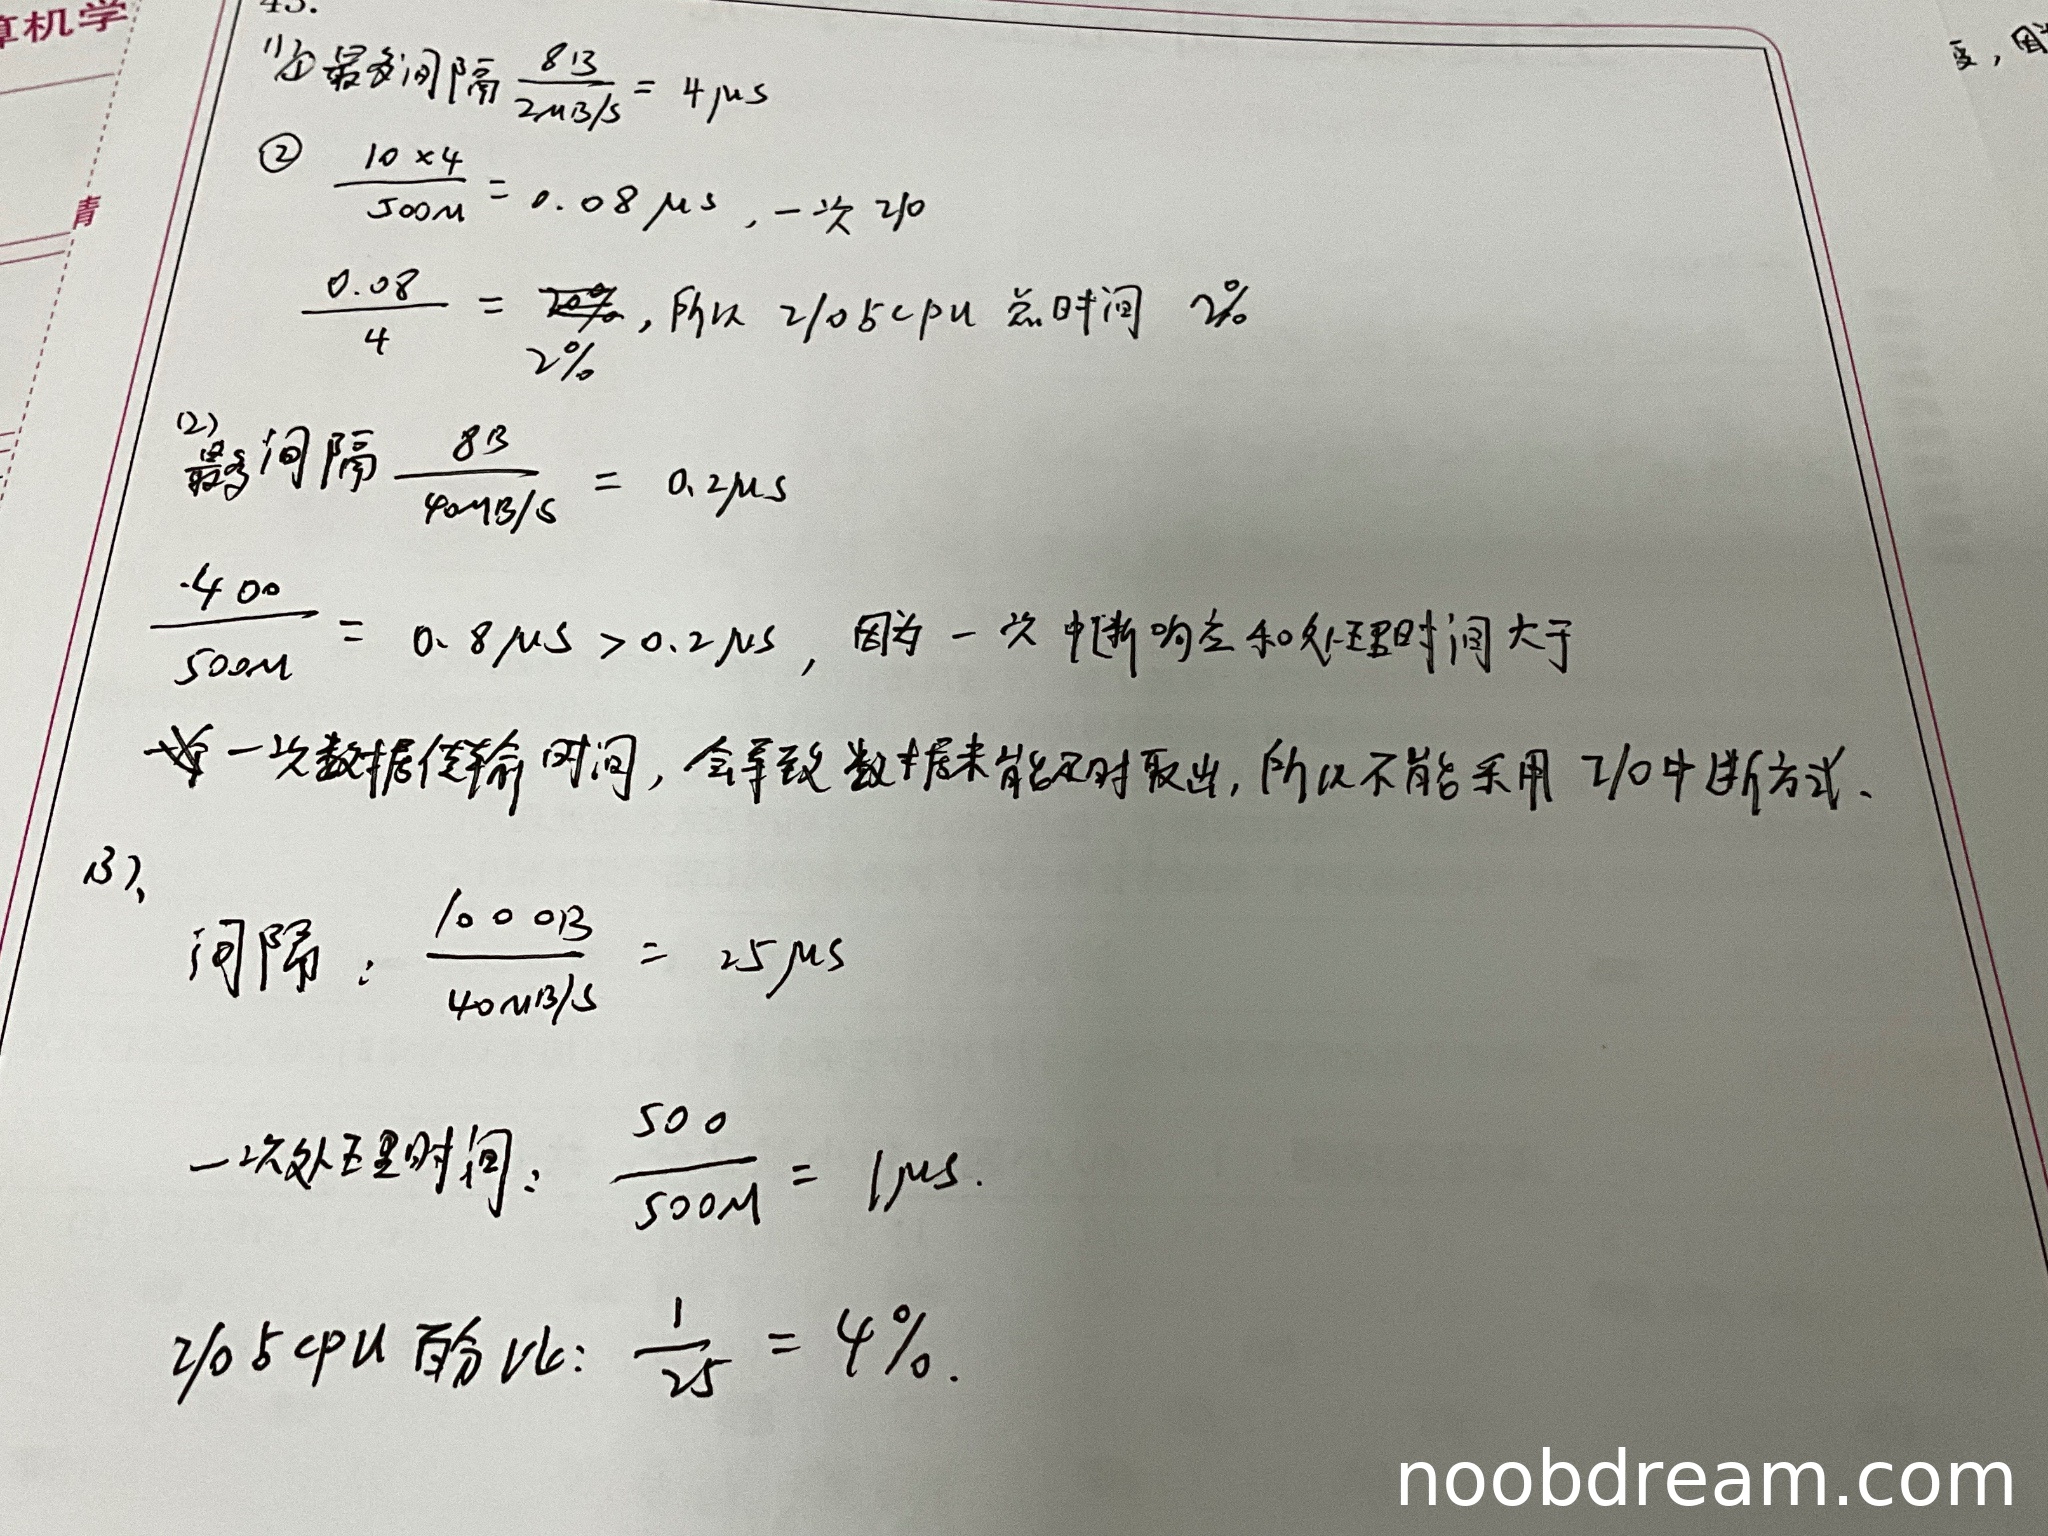 算机学
青
43.
夏，因为
(1) ① 最多间隔 8B / 2MB/s = 4μs
② 10×4 / 500M = 0.08μs，一次I/O
0.08 / 4 = 2%，所以I/O占CPU总时间 2%
(2)
最多间隔 8B / 40MB/s = 0.2μs
400 / 500M = 0.8μs > 0.2μs，因为一次中断响应和处理时间大于
一次数据传输时间，会导致数据未能及时取出，所以不能采用I/O中断方式.
(3)、
间隔： 1000B / 40MB/s = 25μs
一次处理时间： 500 / 500M = 1μs.
I/O占CPU百分比： 1 / 25 = 4%.
noobdream.com